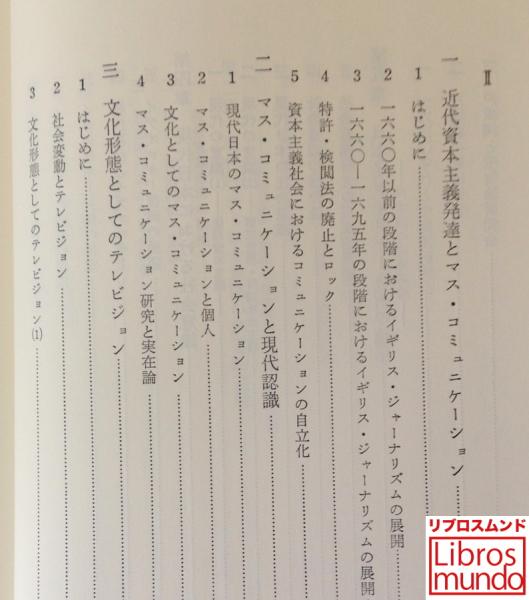 Ⅱ
一 近代資本主義発達とマス・コミュニケーション
1 はじめに
2 一六六〇年以前の段階におけるイギリス・ジャーナリズムの展開
3 一六六〇―一六九五年の段階におけるイギリス・ジャーナリズムの展開
4 特許・検閲法の廃止とロック
5 資本主義社会におけるコミュニケーションの自立化
二 マス・コミュニケーションと現代認識
1 現代日本のマス・コミュニケーション
2 マス・コミュニケーションと個人
3 文化としてのマス・コミュニケーション
4 マス・コミュニケーション研究と実在論
三 文化形態としてのテレビジョン
1 はじめに
2 社会変動とテレビジョン
3 文化形態としてのテレビジョン(1)
リブロスムンド
Libros
mundo